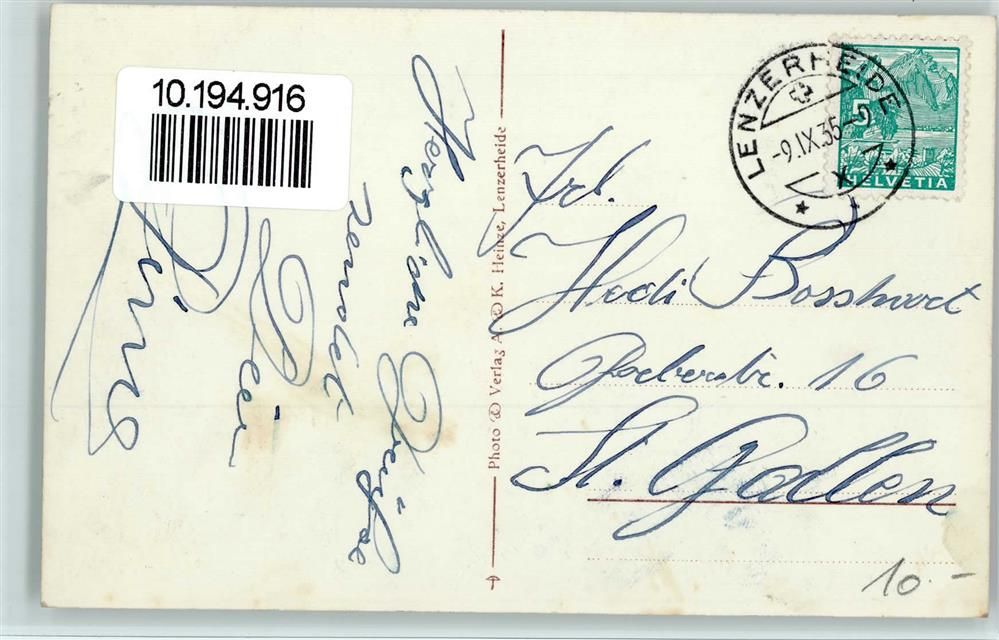 10.194.916
Herzliche Grüsse
sendet
Dein
Photo & Verlag A. & K. Heinze, Lenzerheide
LENZERHEIDE
-9.IX.35-9
5
HELVETIA
Frl.
Hedi Bosshart
16
St. Gallen
10.-